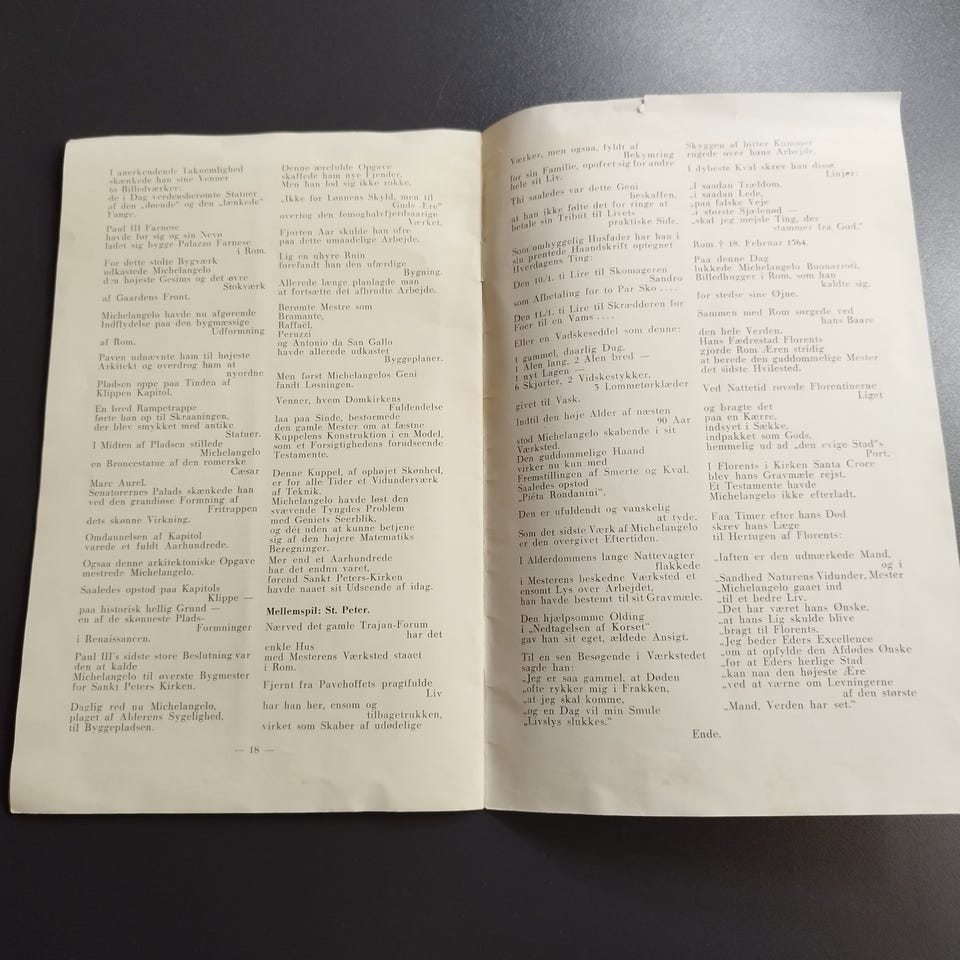 I anerkendende Taknemlighed
skænkede han sine Venner
to Billedværker:
de i Dag verdensberømte Statuer
af den „døende“ og den „lænkede“
Fange.
Paul III Farnese
havde for sig og sin Nevø
ladet sig bygge Palazzo Farnese
i Rom.
For dette stolte Bygværk
udkastede Michelangelo
den højeste Gesims og det øvre
Stokværk
af Gaardens Front.
Michelangelo havde nu afgørende
Indflydelse paa den bygmæssige
Udformning
af Rom.
Paven udnævnte ham til højeste
Arkitekt og overdrog ham at
nyordne
Pladsen oppe paa Tindea af
Klippen Kapitol.
En bred Rampetrappe
førte han op til Skraaningen,
der blev smykket med antike
Statuer.
I Midten af Pladsen stillede
Michelangelo
en Broncestatue af den romerske
Cæsar
Marc Aurel.
Senatorernes Palads skænkede han
ved den grandiøse Formning af
Fritrappen
dets skønne Virkning.
Omdannelsen af Kapitol
varede et fuldt Aarhundrede.
Ogsaa denne arkitektoniske Opgave
mestrede Michelangelo.
Saaledes opstod paa Kapitols
Klippe —
paa historisk hellig Grund —
en af de skønneste Plads-
Formninger
i Renaissancen.
Paul III's sidste store Beslutning var
den at kalde
Michelangelo til øverste Bygmester
for Sankt Peters Kirken.
Daglig red nu Michelangelo,
plaget af Alderens Sygelighed,
til Byggepladsen.
Denne ærefulde Opgave
skaffede ham nye Fjender,
Men han lod sig ikke rokke.
„Ikke for Lønnens Skyld, men til
Guds Ære“
overtog den femoghalvfjerdsaarige
Værket.
Fjorten Aar skulde han ofre
paa dette umaadelige Arbejde.
Lig en uhyre Ruin
forefandt han den ufærdige
Bygning.
Allerede længe planlagde man
at fortsætte det afbrudte Arbejde.
Berømte Mestre som
Bramante,
Raffaël,
Peruzzi
og Antonio da San Gallo
havde allerede udkastet
Byggeplaner.
Men først Michelangelos Geni
fandt Løsningen.
Venner, hvem Domkirkens
Fuldendelse
laa paa Sinde, bestormede
den gamle Mester om at fæstne
Kuppelens Konstruktion i en Model,
som et Forsigtighedens forudseende
Testamente.
Denne Kuppel, af ophøjet Skønhed,
er for alle Tider et Vidunderværk
af Teknik.
Michelangelo havde løst den
svævende Tyngdes Problem
med Geniets Seerblik,
og déj uden at kunne betjene
sig af den højere Matematiks
Beregninger.
Mer end et Aarhundrede
har det endnu varet,
førend Sankt Peters-Kirken
havde naaet sit Udseende af idag.
Mellemspil: St. Peter.
Nærved det gamle Trajan-Forum
har det
enkle Hus
med Mesterens Værksted staaet
i Rom.
Fjernt fra Pavehoffets pragtfulde
Liv
har han her, ensom og
tilbagetrukken,
virket som Skaber af udødelige
— 18 —
Værker, men ogsaa, fyldt af
Bekymring
for sin Familie, opofret sig for andre
hele sit Liv.
Thi saaledes var dette Geni
beskaffen,
at han ikke følte det for ringe at
betale sin Tribut til Livets
praktiske Side.
Som omhyggelig Husfader har han i
sin prentede Haandskrift optegnet
Hverdagens Ting:
Den 10./1. ti Lire til Skomageren
Sandro
som Afbetaling for to Par Sko ....
Den 11./1. ti Lire til Skrædderen for
Foer til en Vams ....
Eller en Vadskeseddel som denne:
1 gammel, daarlig Dug,
1 Alen lang, 2 Alen bred —
1 nyt Lagen —
6 Skjorter, 2 Vidskestykker,
3 Lommetørklæder
givet til Vask.
Indtil den høje Alder af næsten
90 Aar
stod Michelangelo skabende i sit
Værksted.
Den guddommelige Haand
virker nu kun med
Fremstillingen af Smerte og Kval.
Saaledes opstod
„Piéta Rondanini“.
Den er ufuldendt og vanskelig
at tyde.
Som det sidste Værk af Michelangelo
er den overgivet Eftertiden.
I Alderdommens lange Nattevagter
flakkede
i Mesterens beskedne Værksted et
ensomt Lys over Arbejdet,
han havde bestemt til sit Gravmæle.
Den hjælpsomme Olding
i „Nedtagelsen af Korset“
gav han sit eget, ældede Ansigt.
Til en sen Besøgende i Værkstedet
sagde han:
„Jeg er saa gammel, at Døden
„ofte rykker mig i Frakken,
„at jeg skal komme,
„og en Dag vil min Smule
„Livslys slukkes.“
Skyggen af bitter Kummer
rugede over hans Arbejde.
I dybeste Kval skrev han disse
Linjer:
„I saadan Trældom,
„i saadan Lede,
„paa falske Veje
„i største Sjælenød —
„skal jeg mejsle Ting, der
stammer fra Gud.“
Rom † 18. Februar 1564.
Paa denne Dag
lukkede Michelangelo Buonarroti,
Billedhugger i Rom, som han
kaldte sig,
for stedse sine Øjne.
Sammen med Rom sørgede ved
hans Baare
den hele Verden.
Hans Fædrestad Florents
gjorde Rom Æren stridig
at berede den guddommelige Mester
det sidste Hvilested.
Ved Nattetid røvede Florentinerne
Liget
og bragte det
paa en Kærre,
indsyet i Sække,
indpakket som Gods,
hemmelig ud ad „den evige Stad“s
Port.
I Florents i Kirken Santa Croce
blev hans Gravmæle rejst.
Et Testamente havde
Michelangelo ikke efterladt.
Faa Timer efter hans Død
skrev hans Læge
til Hertugen af Florents:
„Iaften er den udmærkede Mand,
og i
„Sandhed Naturens Vidunder, Mester
„Michelangelo gaaet ind
„til et bedre Liv.
„Det har været hans Ønske,
„at hans Lig skulde blive
„bragt til Florents.
„Jeg beder Eders Excellence
„om at opfylde den Afdødes Ønske
„for at Eders herlige Stad
„kan naa den højeste Ære
„ved at værne om Levningerne
af den største
„Mand, Verden har set.“
Ende.